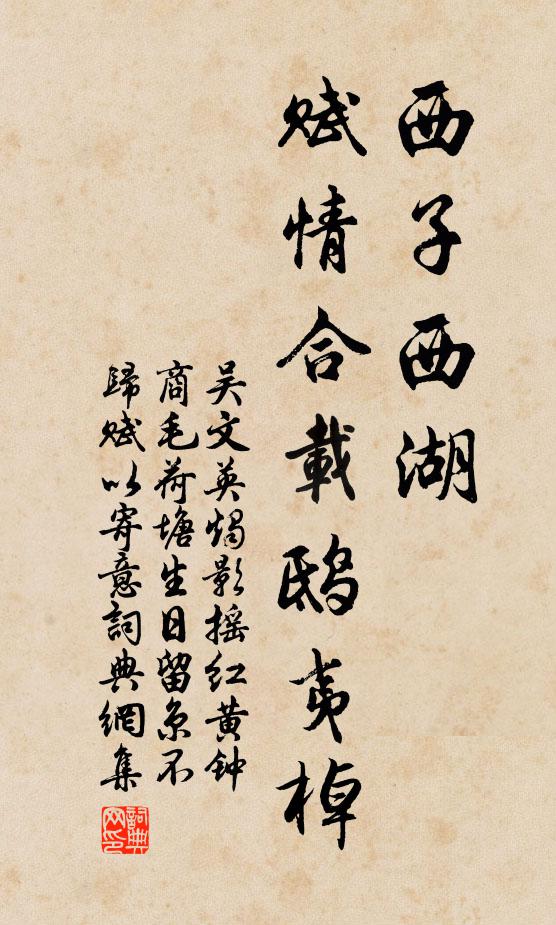 西子西湖
赋情合載鸱夷棹
吴文英燭影摇红黄钟
商毛荷塘生日留京不
歸赋以寄意詞典網集
詞典
网印